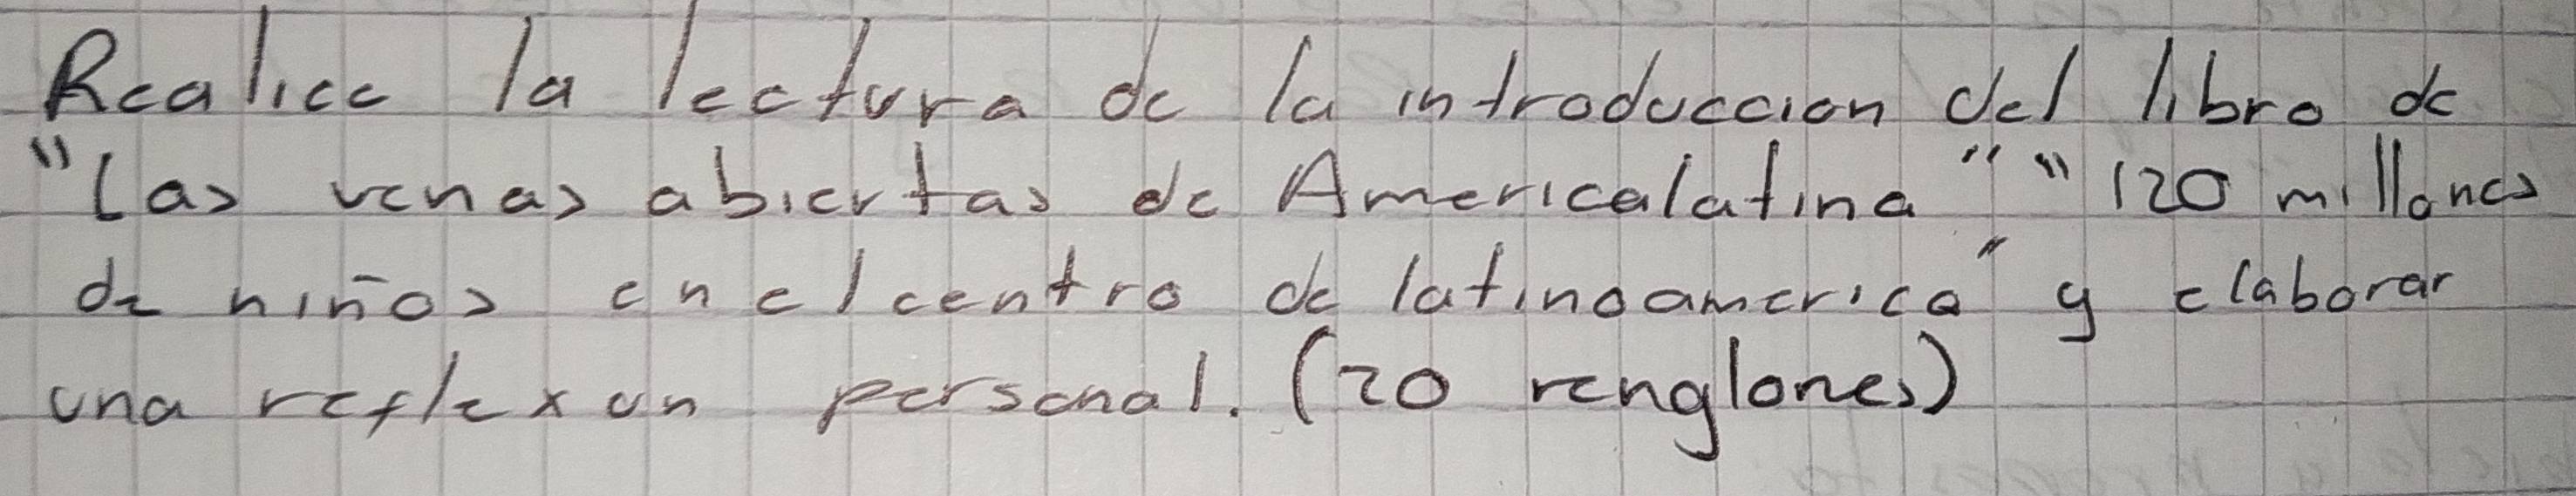 Realice la lectura de la introduccion del libro de
"Las venas abiertas de Americalatina" "120 millones
de niños en el centro de latinoamerica" y elaborar
una reflexon personal. (20 renglones)